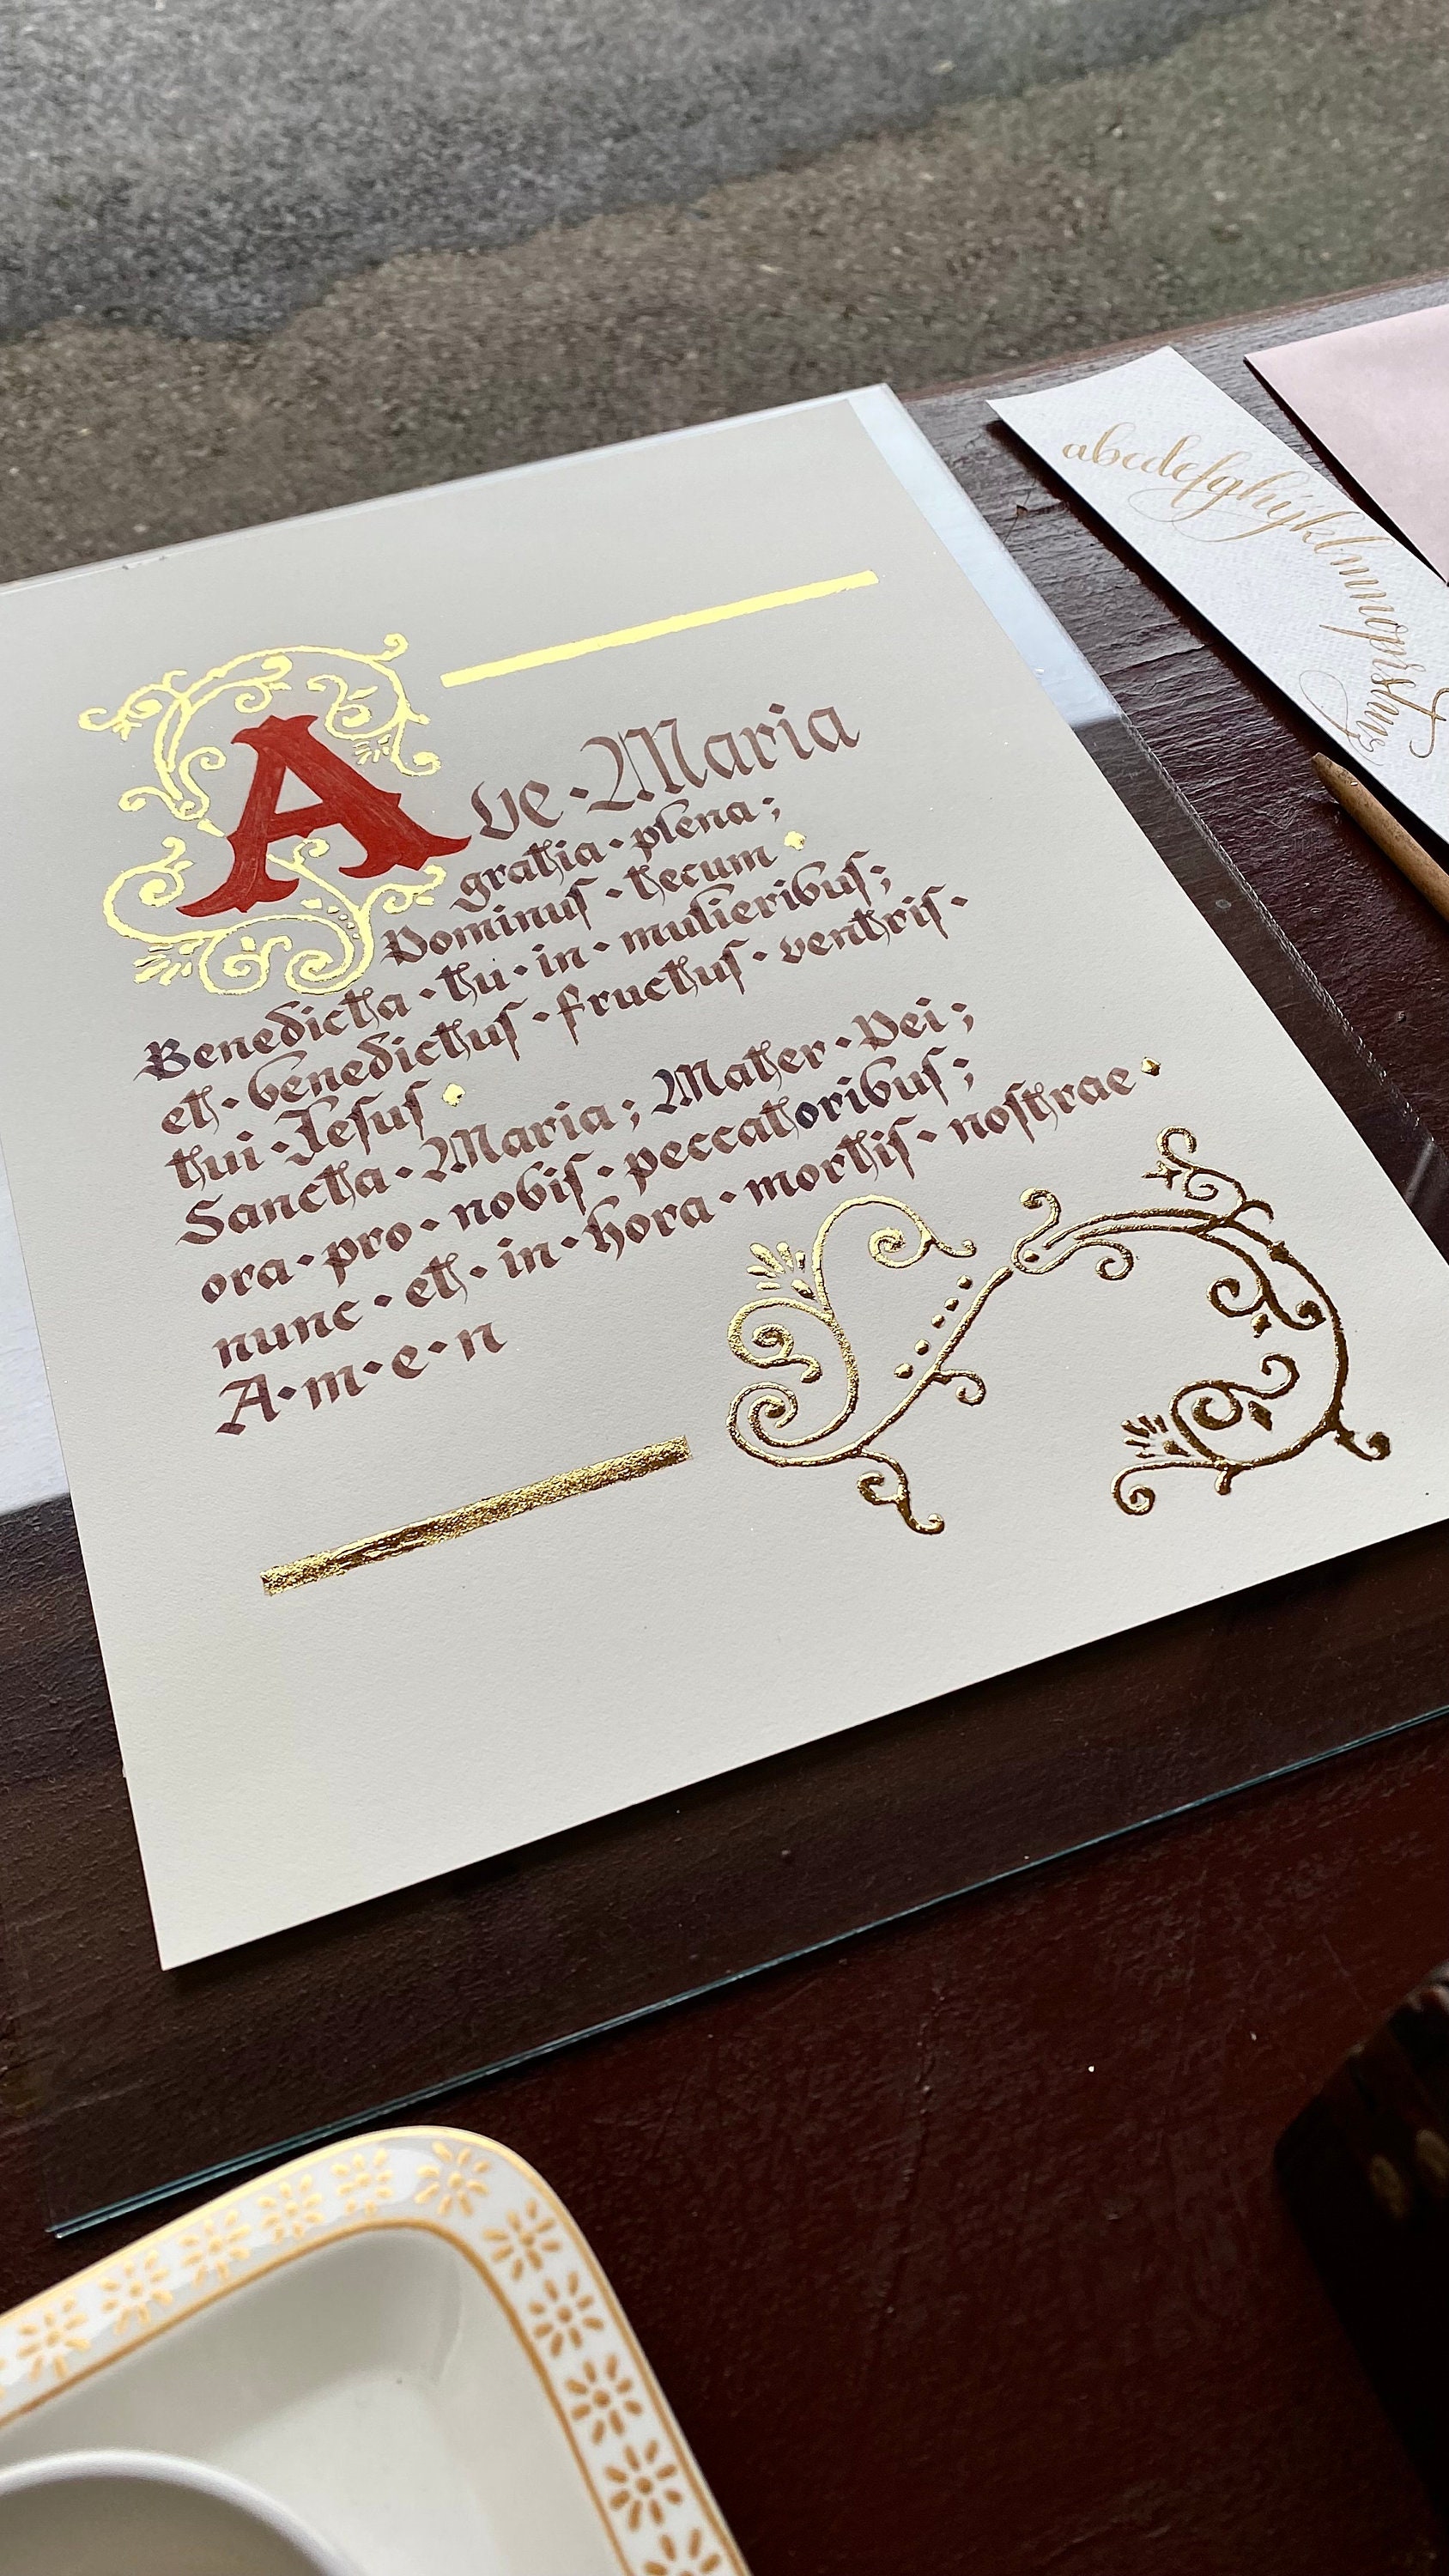 Ave·Maria
gratia·plena;
Dominus·tecum·
Benedicta·tu·in·mulieribus;
et·benedictus·fructus·ventris·
tui·Iesus·
Sancta·Maria; Mater·Dei;
ora·pro·nobis·peccatoribus;
nunc·et·in·hora·mortis·nostrae·
A·m·e·n
abcdefghijklmnopqrstuvwxyz